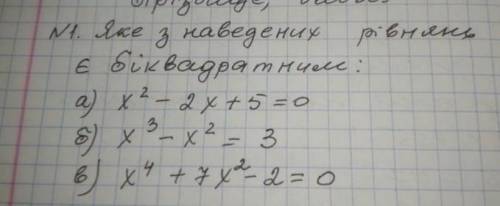 №1. Яке з наведених рівнянь
є біквадратним:
а) x² - 2x + 5 = 0
б) x³ - x² = 3
в) x⁴ + 7x² - 2 = 0